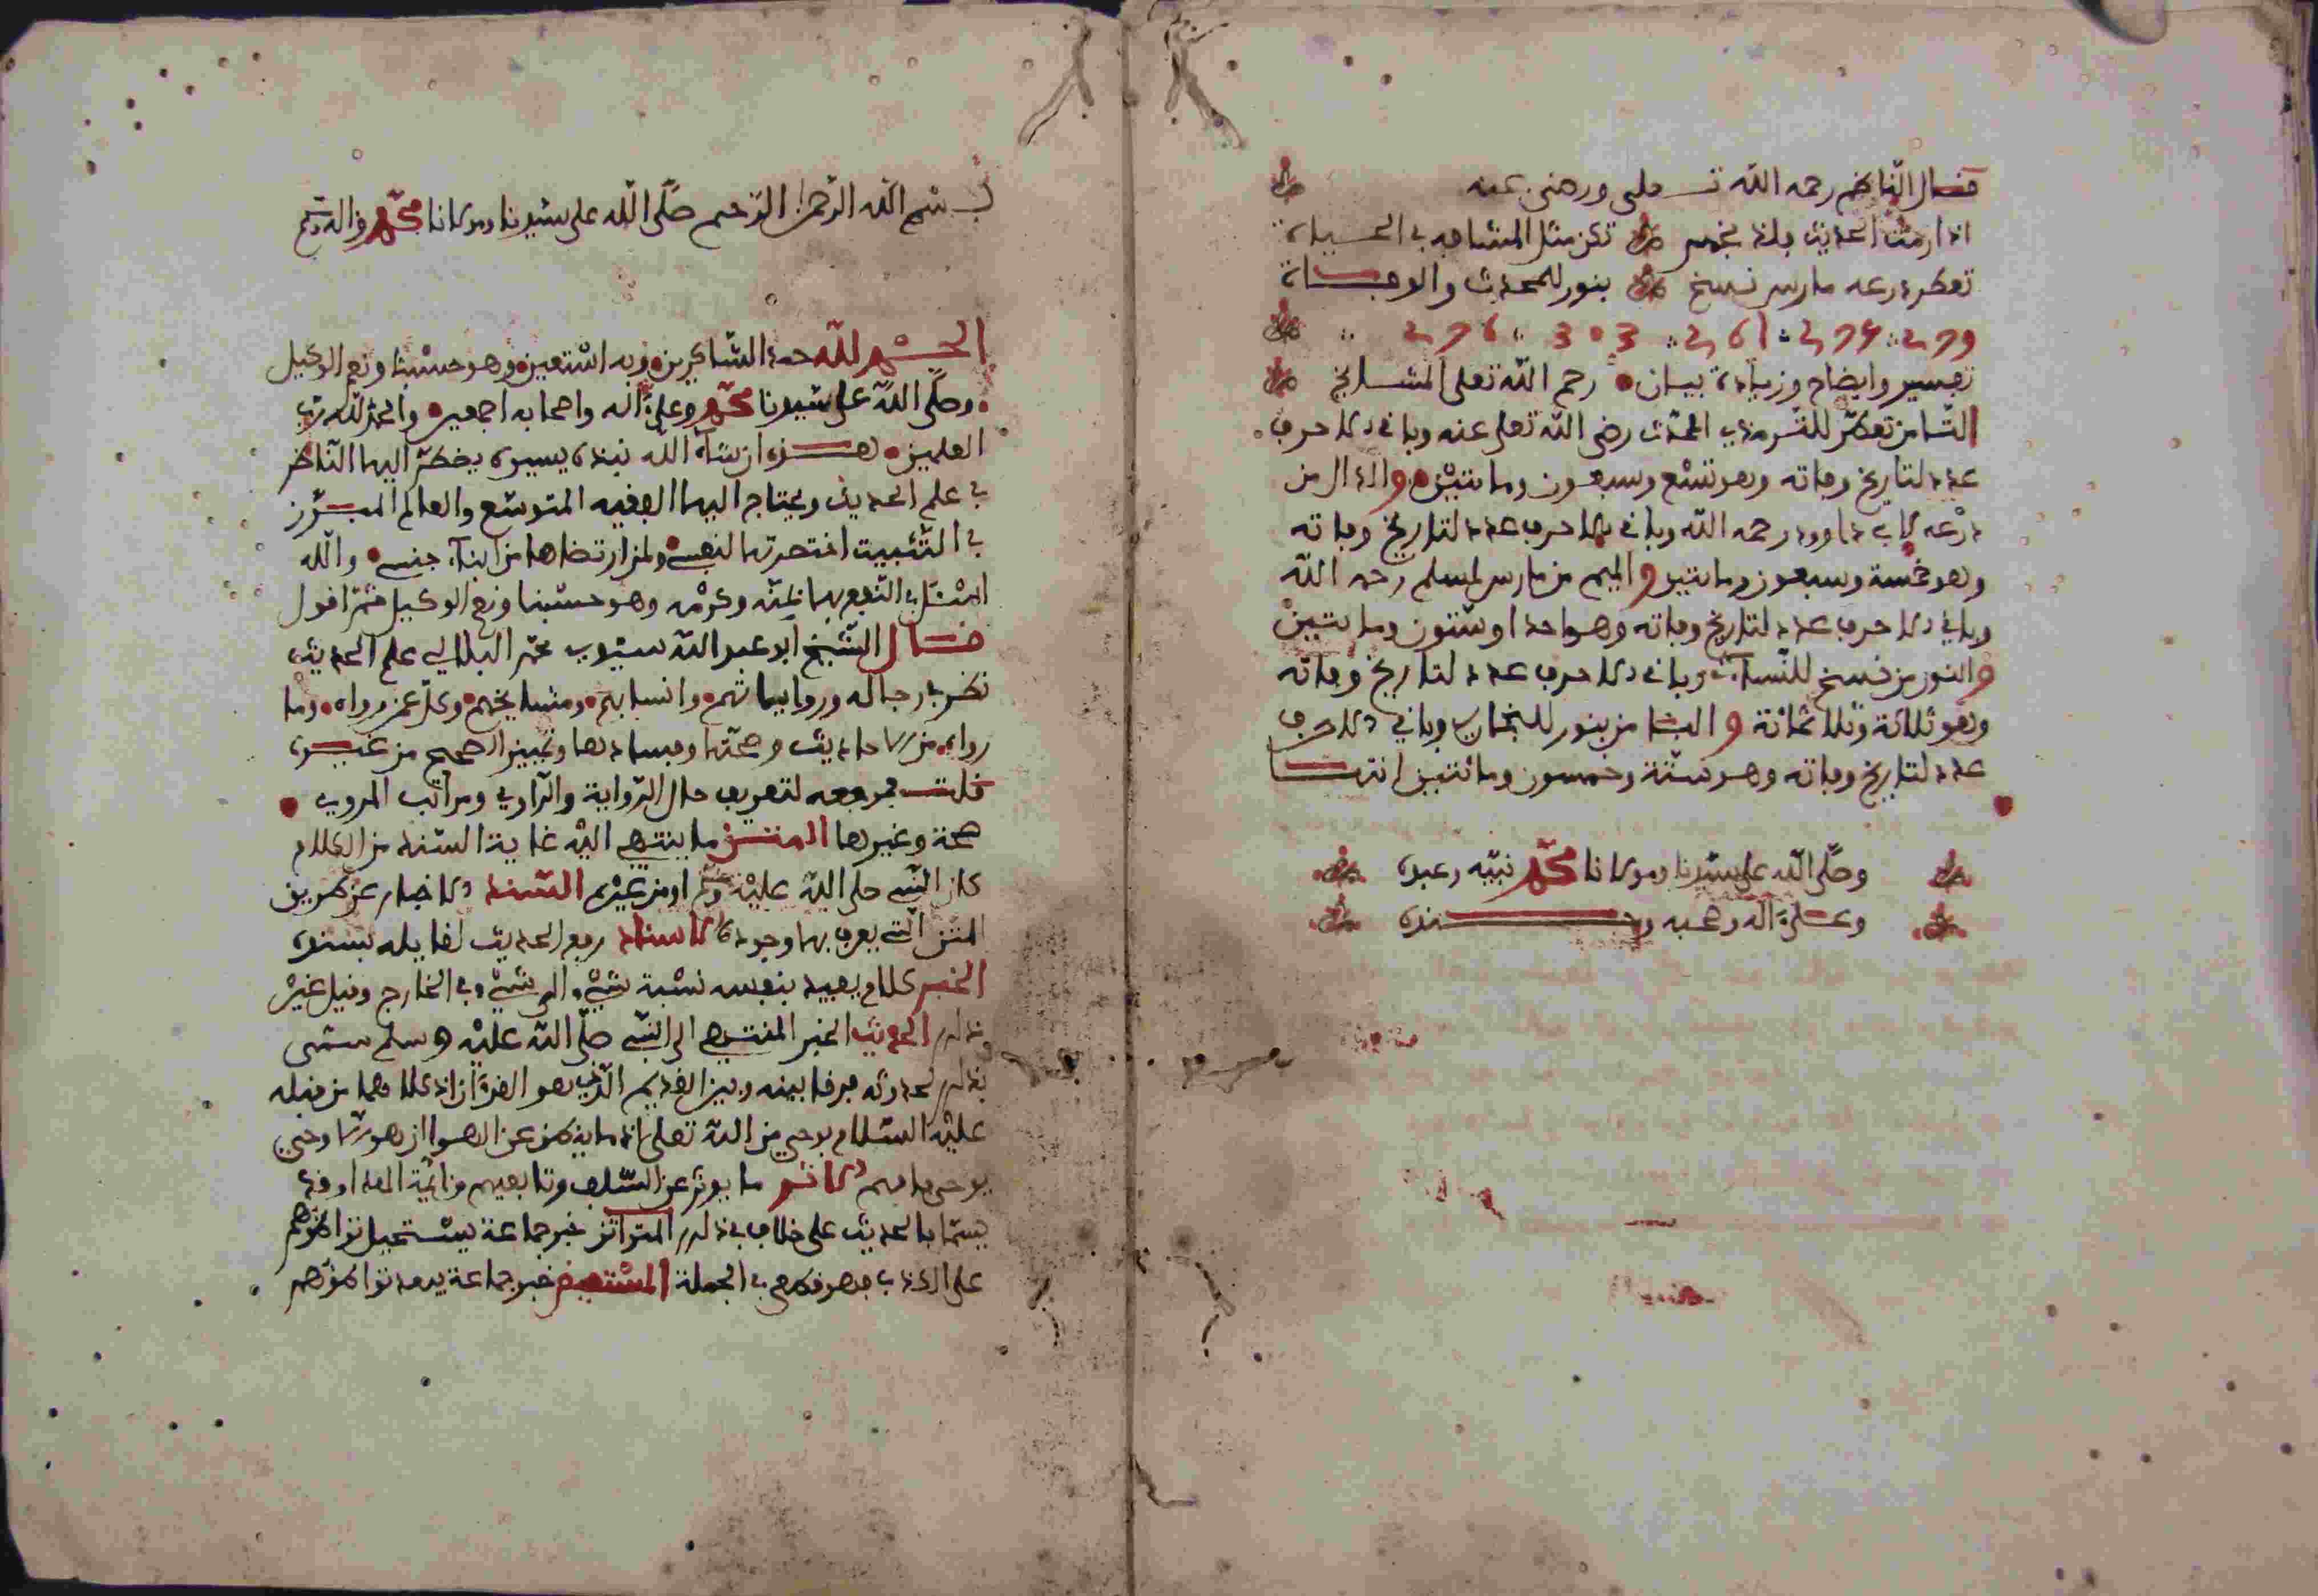 فـــال الناظم رحمه الله تـــعلى ورضي عنه
اذا رمت الحديث بلذ بخمس تكن مثل المشاهد في الحـيـاة
تعطر درعه مارس نسخ بنور للمحدث والوفـــاة
279 :: 275 :: 261 :: 303 :: 256 ::
تفسير وايضاح وزيادة بيان رحم الله تعلى المشـايخ
التا من تعطر للترمذي المحدث رضي الله تعلى عنه وباقي الاحرف
عدد لتاريخ وفاته وهو تسع وسبعون ومايتين والدال من
درعه لابي داوود رحمه الله وباقي الاحرف عدد لتاريخ وفاته
وهو خمسة وسبعون ومايتين والميم من مارس لمسلم رحمه الله
وباقي الاحرف عدد لتاريخ وفاته وهـو احدا وستون ومايتين
والنون من نسخ للنساءي وباقي الاحرف عدد لتاريخ وفاته
وهو ثلاثة وثلاثمائة والبـا من بنور للبخاري وباقي الاحرف
عدد لتاريخ وفاته وهـو ستة وخمسون ومائتين انتهـــا
وصلى الله على سيدنا ومولانا محمد نبيه وعبده
وعـــلى ءاله وصحبه وجـــــنده
بـسم الله الرحمن الرحيم صلى الله على سيدنا ومولانا محمد وءاله وسلم
الحـــمد لله حمد الشاكرين وبه استعين وهو حسبنا ونعم الوكيل
وصلى الله على سيدنا محمد وعلى ءاله واصحابه اجمعين والحمد لله رب
العلمين هـــذه ان شاء الله نبذة يسيرة يضطر اليها الناظر
في علم الحديث ويحتاج اليها الفقيه المتوسع والعالم المبـرز
في التثبيت اختصرتها لنفسي ولمن ارتضاها من ابناء جنسي والله
اسئل النفع بها بمنه وكرمه وهو حسبنا ونعم الوكيل فثم افول
فـــال الشيخ ابو عبد الله سيدي محمد البلالي علم الحديث
نظر في رجاله ورواياتهم وانسابهم ومشايخهم وكل عمن رواه وما
رواه من الاحاديث وصحتها وفسادها وتمييز الصحيح من غيـــره
فلت مرجعه لتعريف حال الرواية والراوي ومراتب المروي
صحة وغيرها المتـــن ما ينتهي اليه غاية السند من الكلام
كان النبي صلى الله عليه وسلم او من غيره السند الاخبار عن طريف
المتن التي يعرف بها وجوده الاسناد رفع الحديث لفايله بسنده
الخبر كلام يفيد بنفسه نسبة شيء الى شيء في الخارج وفيل غير
ذلك الحديث الخبر المنتهي الى النبي صلى الله عليه وسلم سمى
بذلك لحدوثه فرفا بينه وبين الفديم الذي هو الفرءان اذ كلاهما من فبله
عليه السلام بوحي من الله تعلى اذ ما ينطق عن الهـوا ان هو الا وحي
يوحى فافهم الاثـر ما يوثر عن السلف وتابعيهم من ائمة الهدا وفد
يسما بالحديث على خلاف في ذلك المتواتر خبر جماعة يستحيل تواطؤهم
على الكذب فهو فطعي في الجملة المستفيض خبر جماعة يبعد تواطؤهم